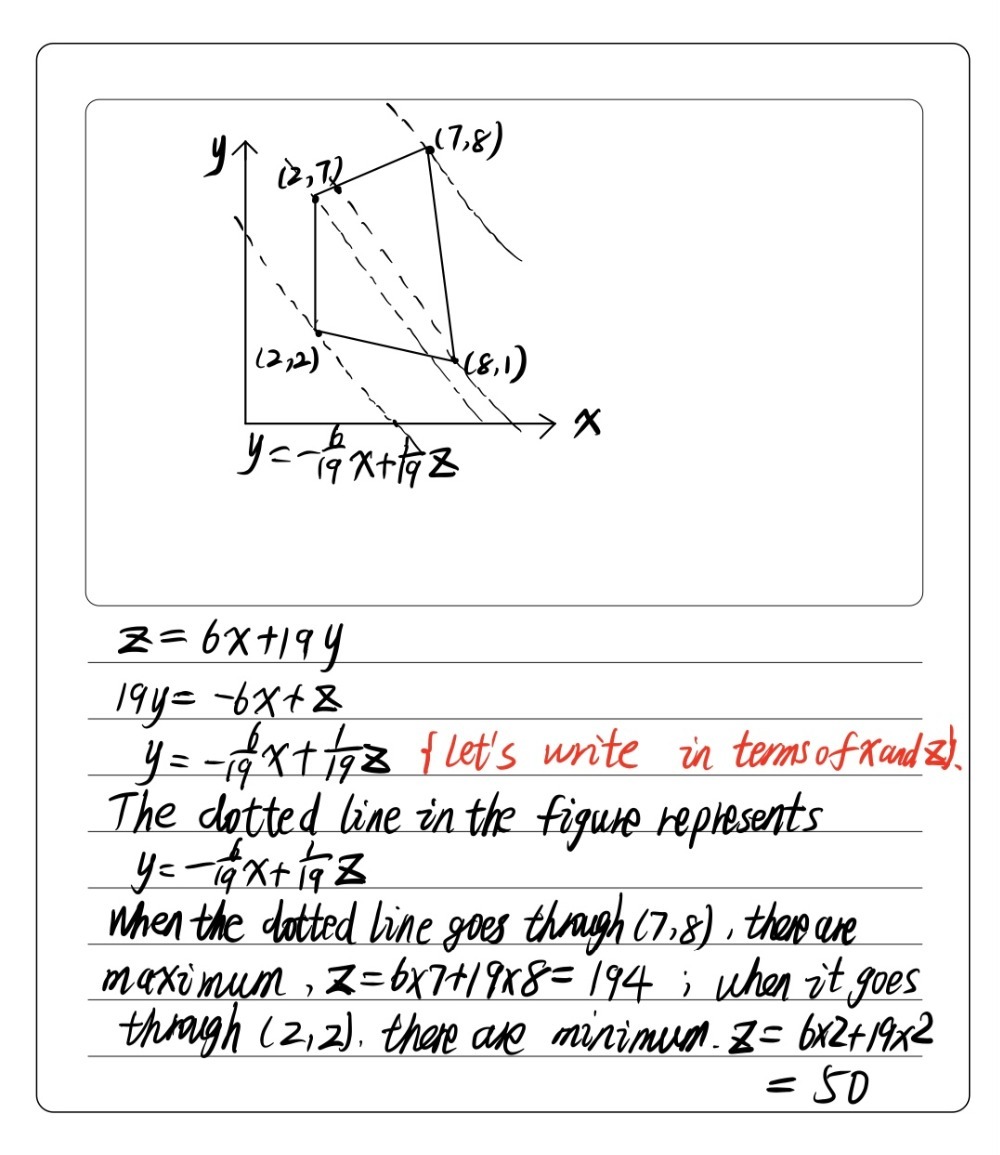 y
(7,8)
(2,7)
(2,2)
(8,1)
x
y=-6/19x+1/19z
z=6x+19y
19y=-6x+z
y=-6/19x+1/19z {Let's write in terms of x and z}.
The dotted line in the figure represents
y=-6/19x+1/19z
when the dotted line goes through (7,8), there are
maximum, z=6x7+19x8=194 ; when it goes
through (2,2), there are minimum. z= 6x2+19x2
= 50